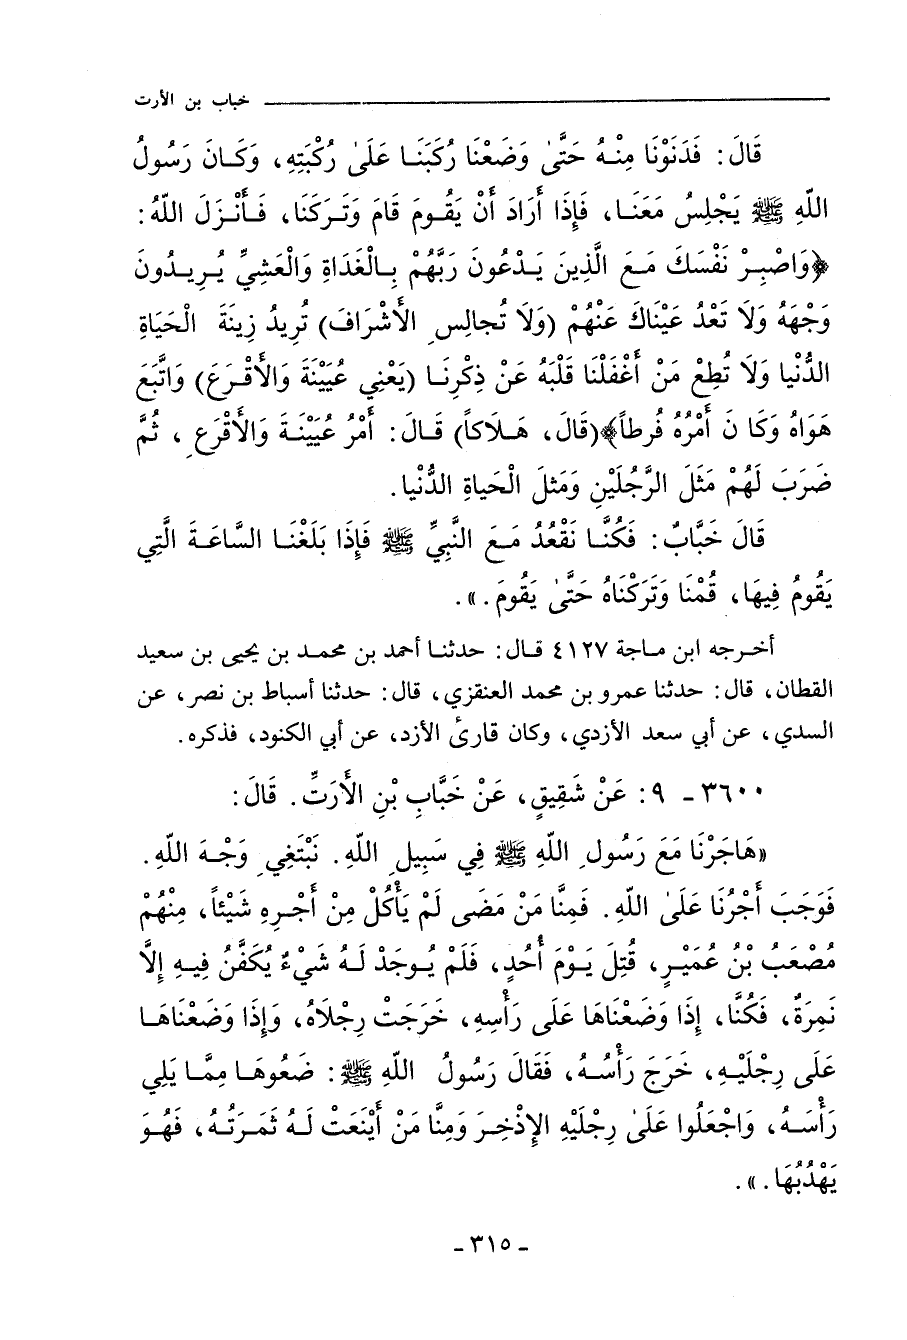 خباب بن الأرت
قَالَ: فَدَنَوْنَا مِنْهُ حَتَّىٰ وَضَعْنَا رُكَبَنَا عَلَىٰ رُكْبَتِهِ، وَكَانَ رَسُولُ
اللّهِ ﷺ يَجْلِسُ مَعَنَا، فَإِذَا أَرَادَ أَنْ يَقُومَ قَامَ وَتَرَكَنَا، فَأَنْزَلَ اللّهُ:
﴿وَاصْبِرْ نَفْسَكَ مَعَ الَّذِينَ يَدْعُونَ رَبَّهُمْ بِالْغَدَاةِ وَالْعَشِيِّ يُرِيدُونَ
وَجْهَهُ وَلَا تَعْدُ عَيْنَاكَ عَنْهُمْ (وَلَا تُجالِسِ الأَشْرَافَ) تُرِيدُ زِينَةَ الْحَيَاةِ
الدُّنْيا وَلَا تُطِعْ مَنْ أَغْفَلْنَا قَلْبَهُ عَنْ ذِكْرِنَا (يَعْنِي عُيَيْنَةَ وَالأَقْرَعَ) وَاتَّبَعَ
هَوَاهُ وَكَا نَ أَمْرُهُ فُرطاً﴾(قَالَ، هَلَاكاً) قَالَ: أَمْرُ عُيَيْنَةَ وَالأَقْرَعِ، ثُمَّ
ضَرَبَ لَهُمْ مَثَلَ الرَّجُلَيْنِ وَمَثلَ الْحَياةِ الدُّنْيا.
قَالَ خَبَّابٌ: فَكُنَّا نَقْعُدُ مَعَ النَّبِيِّ ﷺ فَإِذَا بَلَغْنَا السَّاعَةَ الَّتِي
يَقُومُ فِيهَا، قُمْنَا وَتَرَكْنَاهُ حَتَّىٰ يَقُومَ.».
أخرجه ابن ماجة ٤١٢٧ قال: حدثنا أحمد بن محمد بن يحيى بن سعيد
القطان، قال: حدثنا عمرو بن محمد العنقزي، قال: حدثنا أسباط بن نصر، عن
السدي، عن أبي سعد الأزدي، وكان قارئ الأزد، عن أبي الكنود، فذكره.
٣٦٠٠ - ٩: عَنْ شَقِيقٍ، عَنْ خَبَّابِ بْنِ الأَرَتِّ. قَالَ:
«هَاجَرْنَا مَعَ رَسُولِ اللّهِ ﷺ فِي سَبِيلِ اللّهِ. نَبْتَغِي وَجْهَ اللّهِ.
فَوَجَبَ أَجْرُنَا عَلَىٰ اللّهِ. فَمِنَّا مَنْ مَضَى لَمْ يَأْكُلْ مِنْ أَجْرِهِ شَيْئاً، مِنْهُمْ
مُصْعَبُ بْنُ عُمَيْرٍ، قُتِلَ يَوْمَ أُحُدٍ، فَلَمْ يُوجَدْ لَهُ شَيْءٌ يُكَفَّنُ فِيهِ إِلَّا
نَمِرَةٌ، فَكُنَّا، إِذَا وَضَعْنَاهَا عَلَى رَأْسِهِ، خَرَجَتْ رِجْلَاهُ، وَإِذَا وَضَعْنَاهَا
عَلَى رِجْلَيْهِ، خَرَجَ رَأْسُهُ، فَقَالَ رَسُولُ اللّهِ ﷺ: ضَعُوهَا مِمَّا يَلِي
رَأْسَهُ، وَاجْعَلُوا عَلَىٰ رِجْلَيْهِ الإِذْخِرَ وَمِنَّا مَنْ أَيْنَعَتْ لَهُ ثَمَرَتُهُ، فَهُوَ
يَهْدُبُهَا.».
- ٣١٥ -